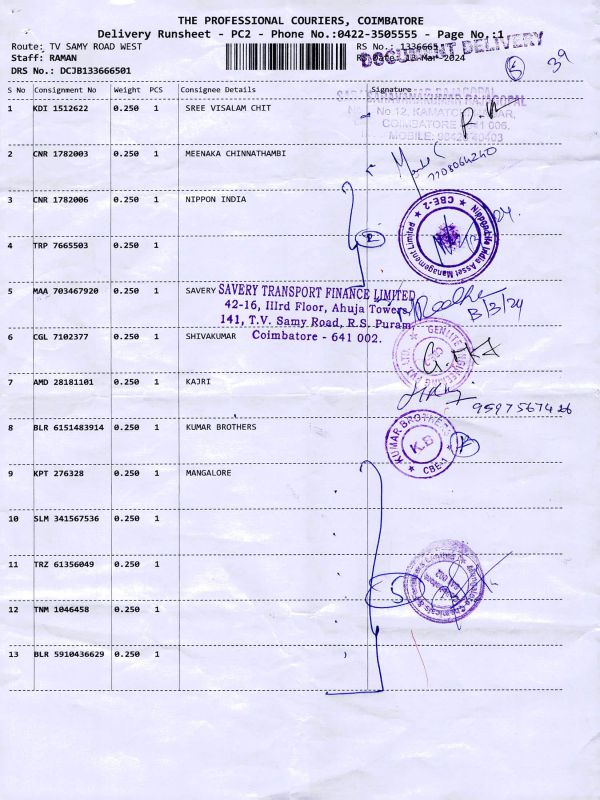 THE PROFESSIONAL COURIERS, COIMBATORE
Delivery Runsheet - PC2 - Phone No.:0422-3505555 - Page No.:1
Route: TV SAMY ROAD WEST
RS No.: 1336665
Staff: RAMAN
RS Date: 13-Mar-2024
DOCUMENT DELIVERY
DRS No.: DCJB133666501
5
39
S No Consignment No Weight PCS Consignee Details Signature
1 KDI 1512622 0.250 1 SREE VISALAM CHIT
No.12, KAMATCHI
COIMBATORE - 641 006.
2 CNR 1782003 0.250 1 MEENAKA CHINNATHAMBI
7708064240
3 CNR 1782006 0.250 1 NIPPON INDIA
Nippon Life India Asset Management Limited ★ CBE-2 ★
2
4 TRP 7665503 0.250 1
5 MAA 703467920 0.250 1 SAVERY
SAVERY TRANSPORT FINANCE LIMITED
42-16, IIIrd Floor, Ahuja Towers,
141, T.V. Samy Road, R.S. Puram,
Coimbatore - 641 002.
13/3/24
6 CGL 7102377 0.250 1 SHIVAKUMAR
7 AMD 28181101 0.250 1 KAJRI
9597567426
8 BLR 6151483914 0.250 1 KUMAR BROTHERS
KUMAR BROTHERS ★ CBE-1 ★
K.B
9 KPT 276328 0.250 1 MANGALORE
10 SLM 341567536 0.250 1
11 TRZ 61356049 0.250 1
5
12 TNM 1046458 0.250 1
13 BLR 5910436629 0.250 1